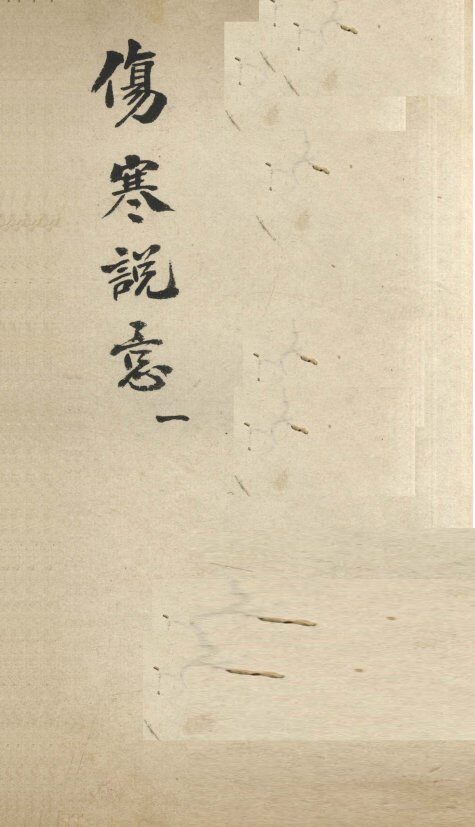 傷寒説意
一